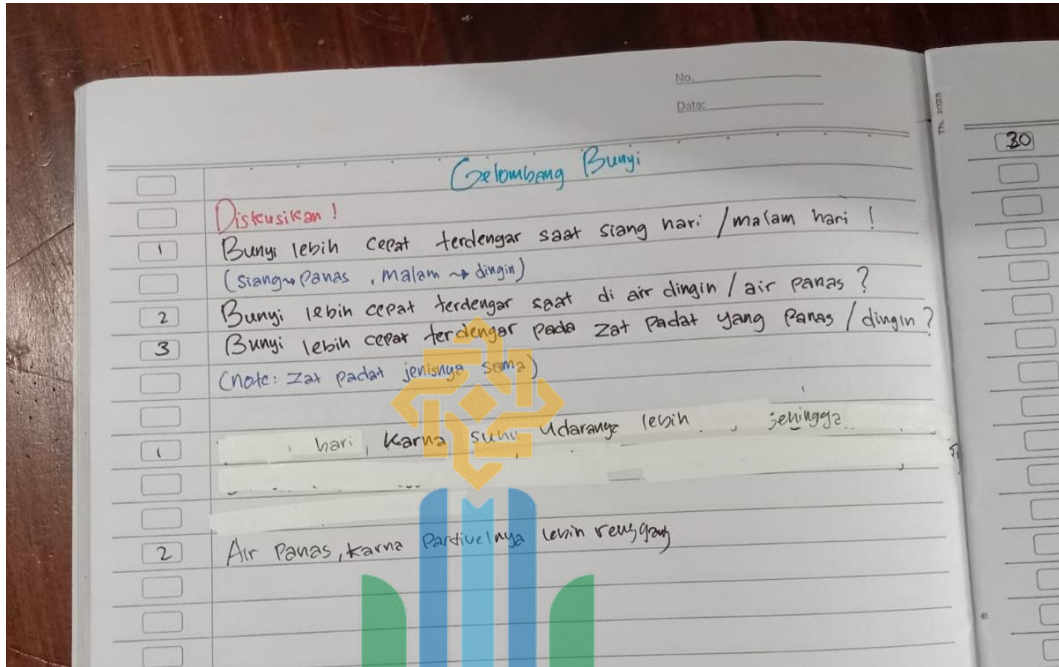 No.
Date:
30
Gelombang Bunyi
Diskusikan!
1 Bunyi lebih cepat terdengar saat siang hari / malam hari !
(siang → panas , malam → dingin)
2 Bunyi lebih cepat terdengar saat di air dingin / air panas ?
3 Bunyi lebih cepat terdengar pada zat padat yang panas / dingin ?
(note: zat padat jenisnya sama)
1 hari, karna suhu udaranya lebih sehingga
2 Air panas, karna partikelnya lebih renggang